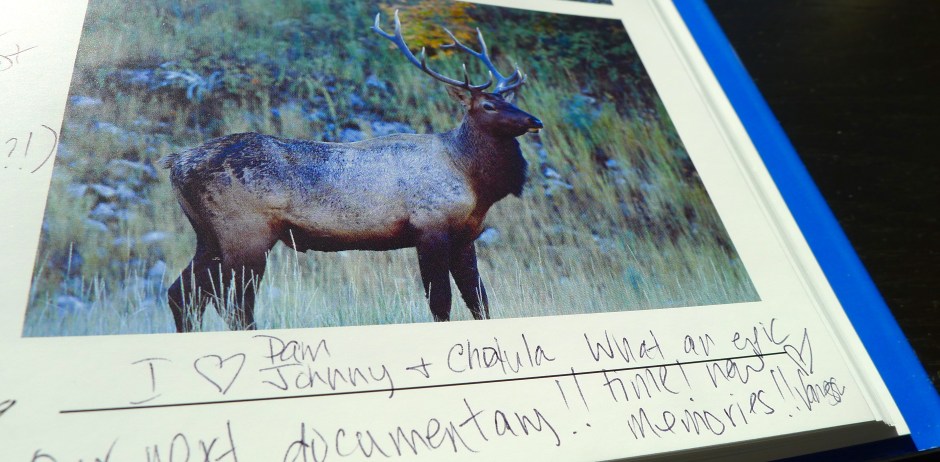 ?!)
I ♡ Pam
Johnny + Cholula What an epic
time! new ♡
memories!!
next documentary!!